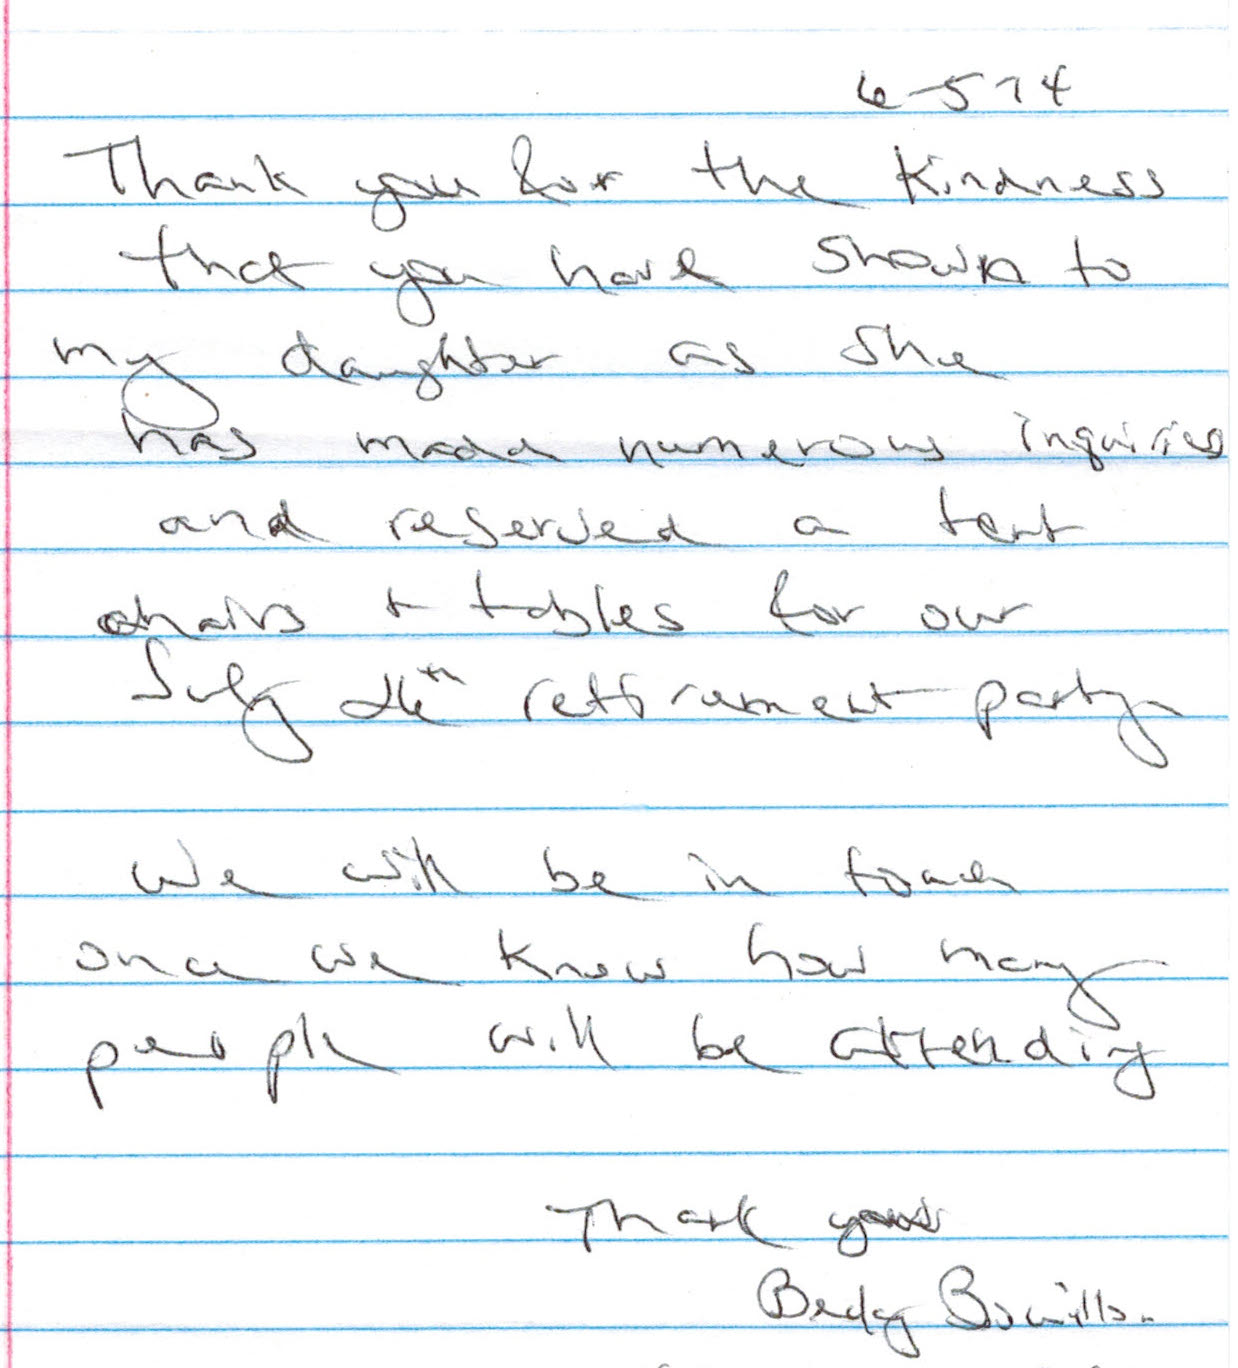 6-5-14
Thank you for the kindness
that you have shown to
my daughter as she
has made numerous inquiries
and reserved a tent
chairs + tables for our
July 26th retirement party
We will be in touch
once we know how many
people will be attending
Thank you
Becky